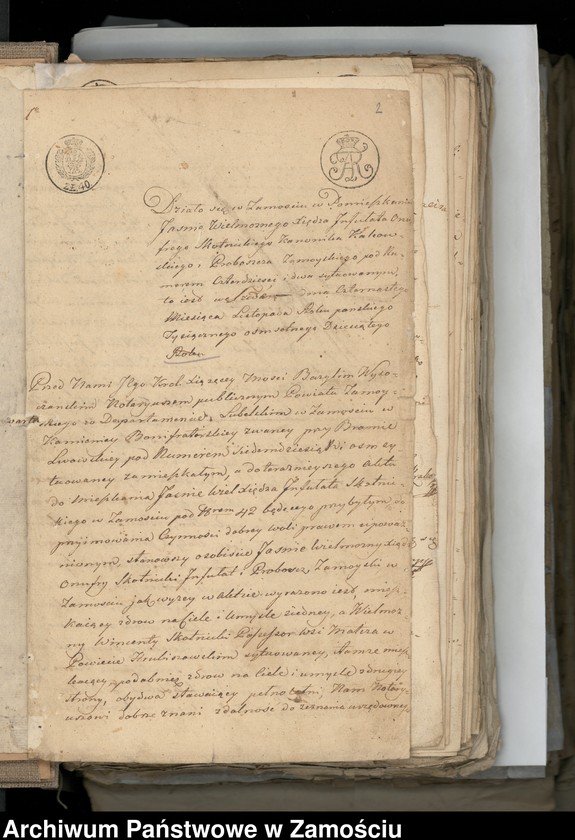 2
ZŁ. 40.
Działo się w Zamosciu w Pomieszkaniu
Jaśnie Wielmożnego Xiędza Infułata Onu
frego Skotnickiego Kanonika
i Proboszcza Zamoyskiego pod Nu-
merem Czterdzieści i dwa sytuowanym,
to iest w Srodę dnia Czternastego
Miesiąca Listopada Roku pańskiego
Tysiącznego osmsetnego Dziesiątego
Roku
Przed Nami Jego Krol: Xiążęcey Mości Bazylim Wyso-
Notaryuszem publicznym Powiatu Zamoy-
skiego w Departamencie Lubelskim w Zamościu w
Kamienicy Bonifraterskiey zwaney przy Bramie
Lwowskiey pod Numerem Siedmdziesiąt i osm sy
tuowaney zamieszkałym, a do teraznieyszego Aktu
do mieszkania Jaśnie Wiel. Xiędza Infułata Skotnic-
kiego w Zamościu pod Nrem 42 będącego przybyłym, do
przyimowania Czynności dobrey woli prawem upoważ
nionym, stanowszy osobiście Jaśnie Wielmożny Xiądz
Onufry Skotnicki Infułat i Proboszcz Zamoyski w
Zamościu jak wyżey w Akcie wyrażono iest, miesz
kaiący zdrow na Ciele i Umyśle z iedney, a Wielmoż
ny Wincenty Skotnicki Possessor Wsi Malicza w
Powiecie Hrubieszowskim sytuowaney, tamże miesz
kaiący, podobnież zdrow na Ciele i umyśle z drugiey
strony, obydwa stawaiący pełnoletni, Nam Notary
uszowi dobrze znani zdolność do zeznania urzędowego
Archiwum Państwowe w Zamościu